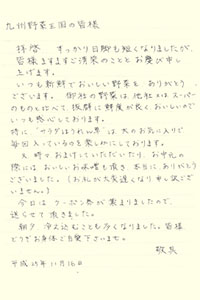 九州野菜王国の皆様
拝啓 すっかり日脚も短くなりましたが、
皆様ますますご清栄のこととお慶び申し
上げます。
いつも新鮮でおいしい野菜をありがとう
ございます。御社の野菜は、他社やスーパー
のものと比べて、抜群に鮮度が良くおいしいので
いつも感心しております。
特に「サラダほうれん草」は、大のお気に入りで
毎回入っているのを楽しみにしております。
又、時々おまけしていただいたり、お中元の
際にはおいしいお味噌も頂き、本当にありがとう
ございました。(お礼が大変遅くなり申し訳ござ
いません。)
今回はクーポン券が貯まりましたので、
送らせて頂きました。
朝夕、冷え込むことも多くなりました。皆様
どうぞお身体ご自愛下さいませ。
敬具
平成 年11月16日